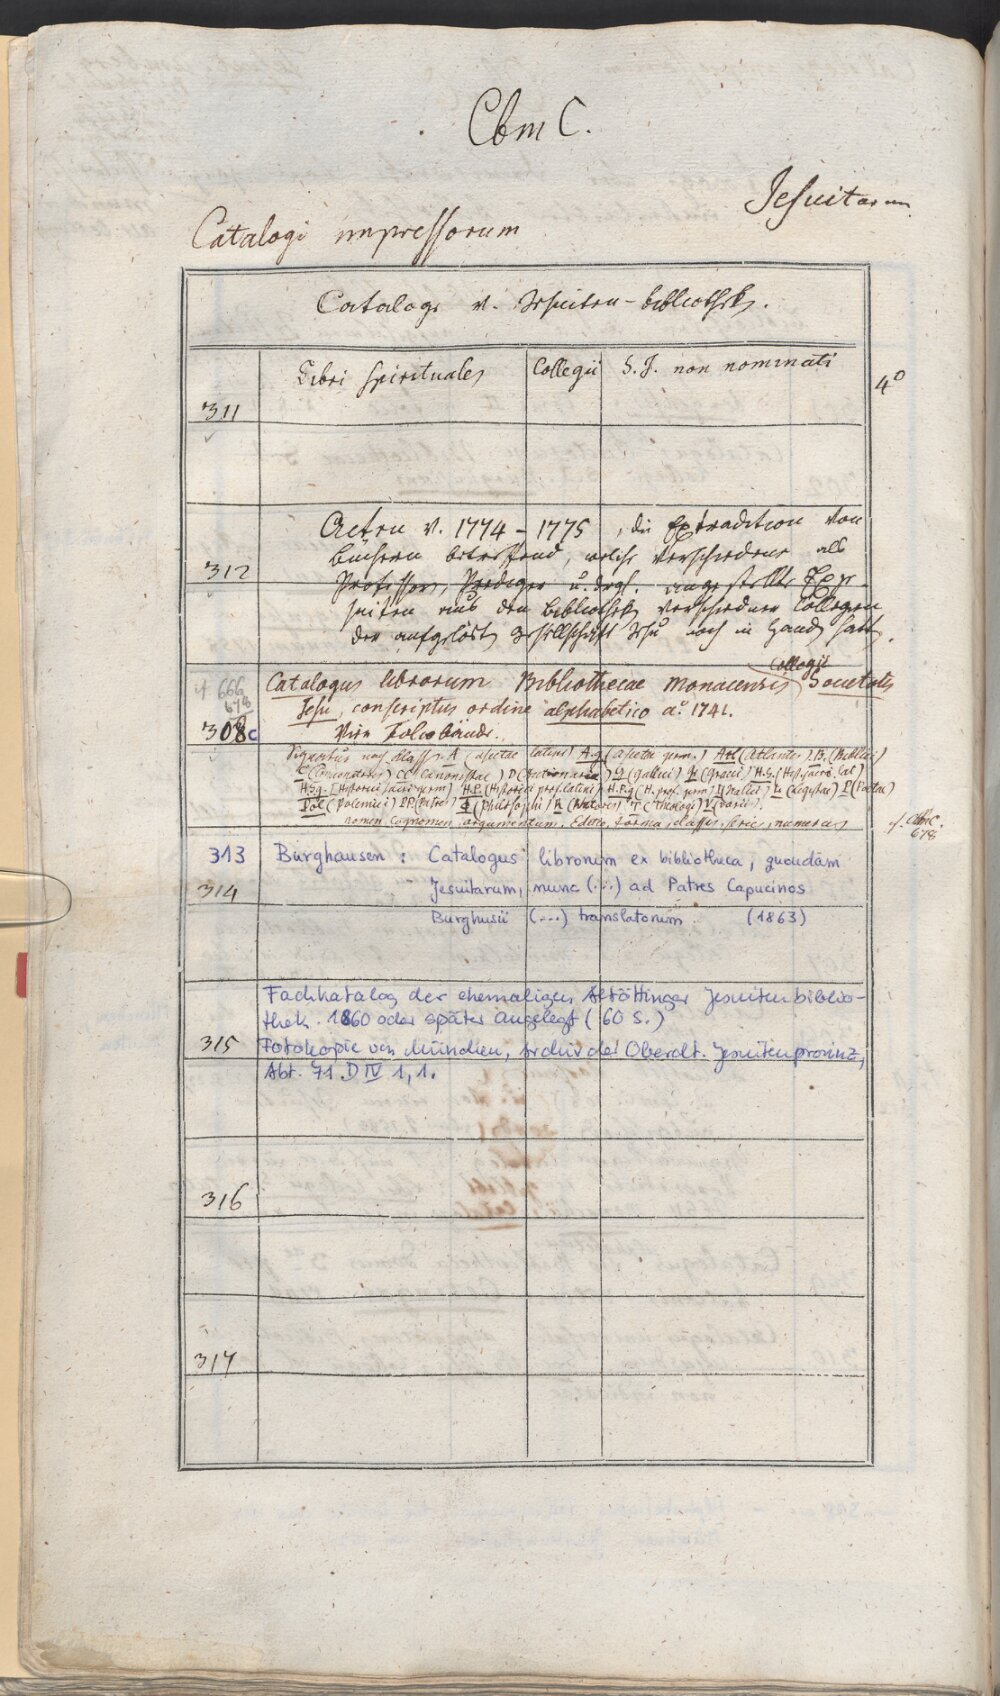 Cbm C.
Jesuitarum
Catalogi impressorum
Cataloge v. Jesuiten-bibliotheken.
Libri spirituales Collegii S. J. non nominati 4°
311
Acten v. 1774-1775, die Extradition von
Büchern betreffend, welche verschiedene als
312
Professoren, Prediger u. drgl. angestellte Exje-
suiten aus den Bibliotheken verschiedner Collegien
der aufgelösten Gesellschaft Jesu noch in Handen hatten.
cf 666 678
Catalogus librorum Bibliothecae Monacensis Collegii Societatis
Jesu, conscriptus ordine alphabetico a° 1741.
308c Vier Foliobände.
Signatur nach Classen A (ascetae latini) A.g (ascetae germ.) Atl (Atlantes) B. (Biblici)
C (Concionatores) CC (Canonistae) D (Dictionaria) G (gallici) Gr (graeci) H.S. (Hist. sacro. lat)
H.Sg. (Historici sacri germ) H.P. (Historici prof. latini) H.P.g (H. prof. germ) I (Itallici) L (Legistae) P (Poetae)
Pol (Polemici) PP (Patres) Φ (Philosophi) R (Rhetores) T (Theologi) V (Varii).
nomen, cognomen, argumentum, Editio, forma, classis, series, numerus
cf. Cbm C. 678
313 Burghausen: Catalogus librorum ex bibliotheca, quondam
314 Jesuitarum, nunc (...) ad Patres Capucinos
Burghusii (...) translatorum (1863)
Fachkatalog der ehemaligen Altöttinger Jesuitenbiblio-
thek. 1860 oder später angelegt (60 S.)
315 Fotokopie von München, Archiv der Oberdt. Jesuitenprovinz,
Abt. 71 D IV 1,1.
316
317